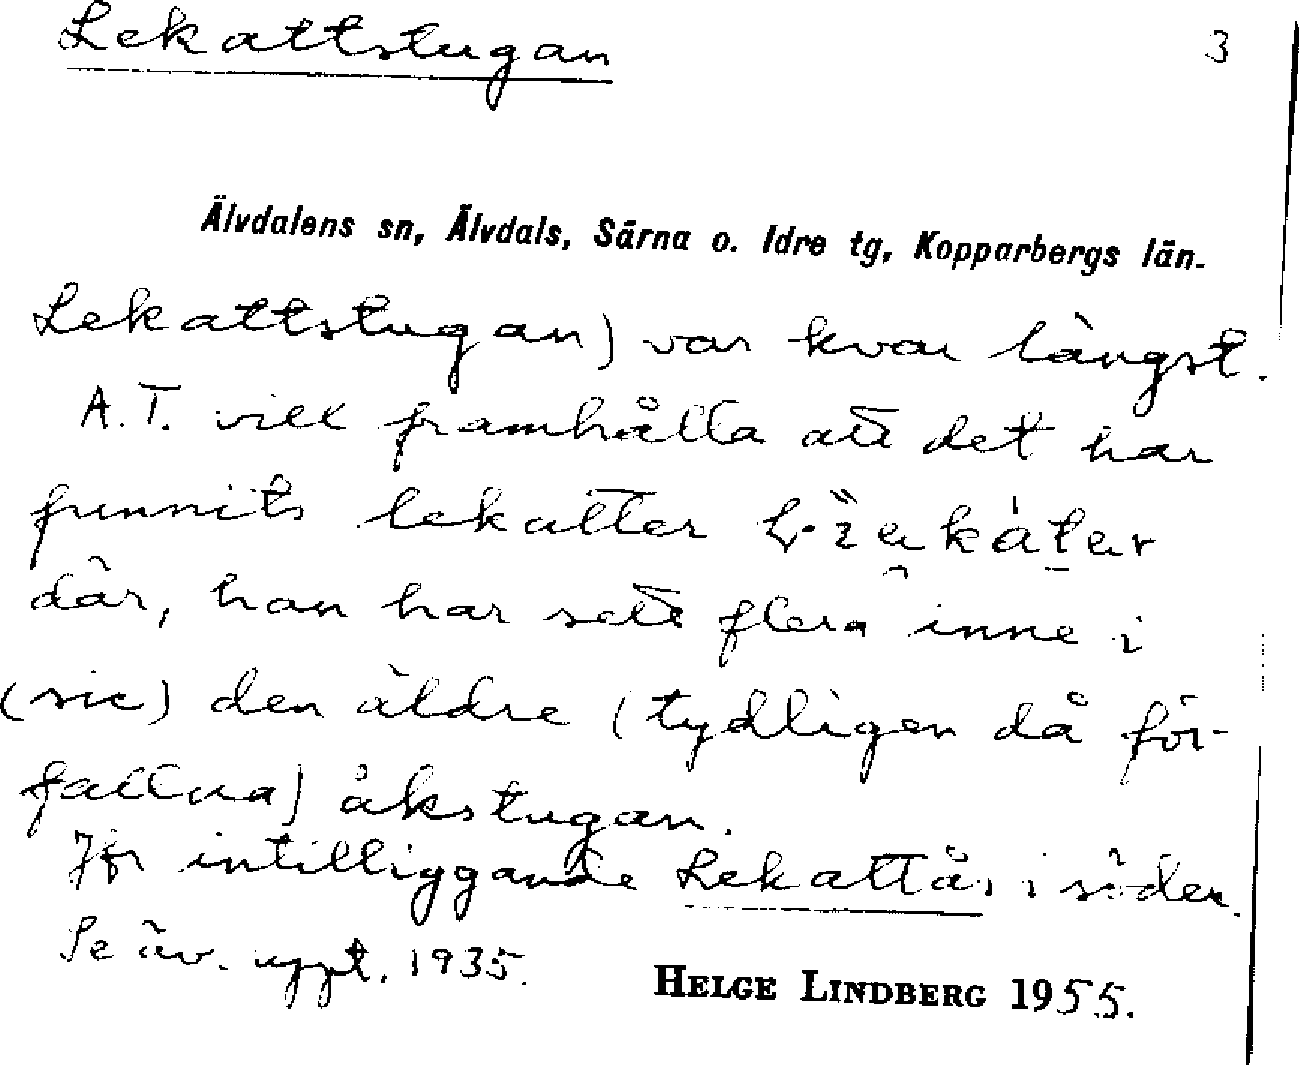 Lekattstugan 3
Älvdalens sn, Älvdals, Särna o. Idre tg, Kopparbergs län.
Lekattstugan) var kvar längst.
A.T. vill framhålla att det har
funnits lekatter
där, han har sett flera inne i
(sic) den äldre (tydligen då för-
fallna) åkstugan.
Jfr intilliggande Lekattån i söder.
Se äv. uppt. 1935.
HELGE LINDBERG 1955.